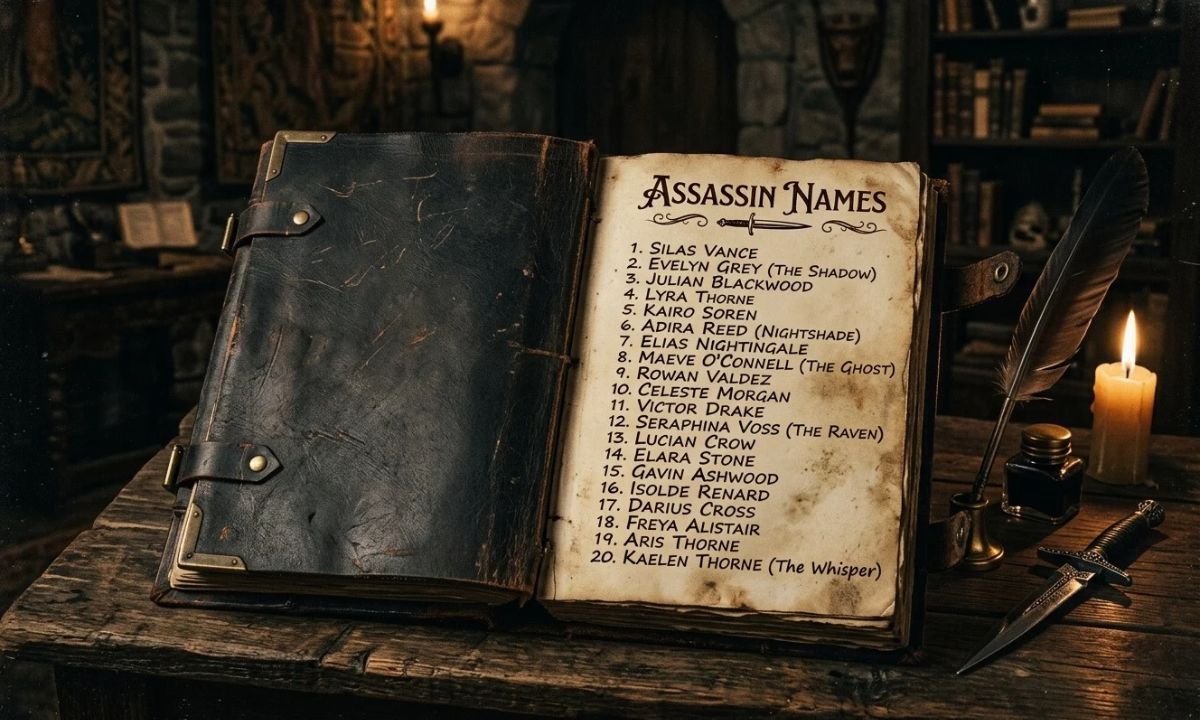 ASSASSIN NAMES
1. SILAS VANCE
2. EVELYN GREY (THE SHADOW)
3. JULIAN BLACKWOOD
4. LYRA THORNE
5. KAIRO SOREN
6. ADIRA REED (NIGHTSHADE)
7. ELIAS NIGHTINGALE
8. MAEVE O'CONNELL (THE GHOST)
9. ROWAN VALDEZ
10. CELESTE MORGAN
11. VICTOR DRAKE
12. SERAPHINA VOSS (THE RAVEN)
13. LUCIAN CROW
14. ELARA STONE
15. GAVIN ASHWOOD
16. ISOLDE RENARD
17. DARIUS CROSS
18. FREYA ALISTAIR
19. ARIS THORNE
20. KAELEN THORNE (The Whisper)